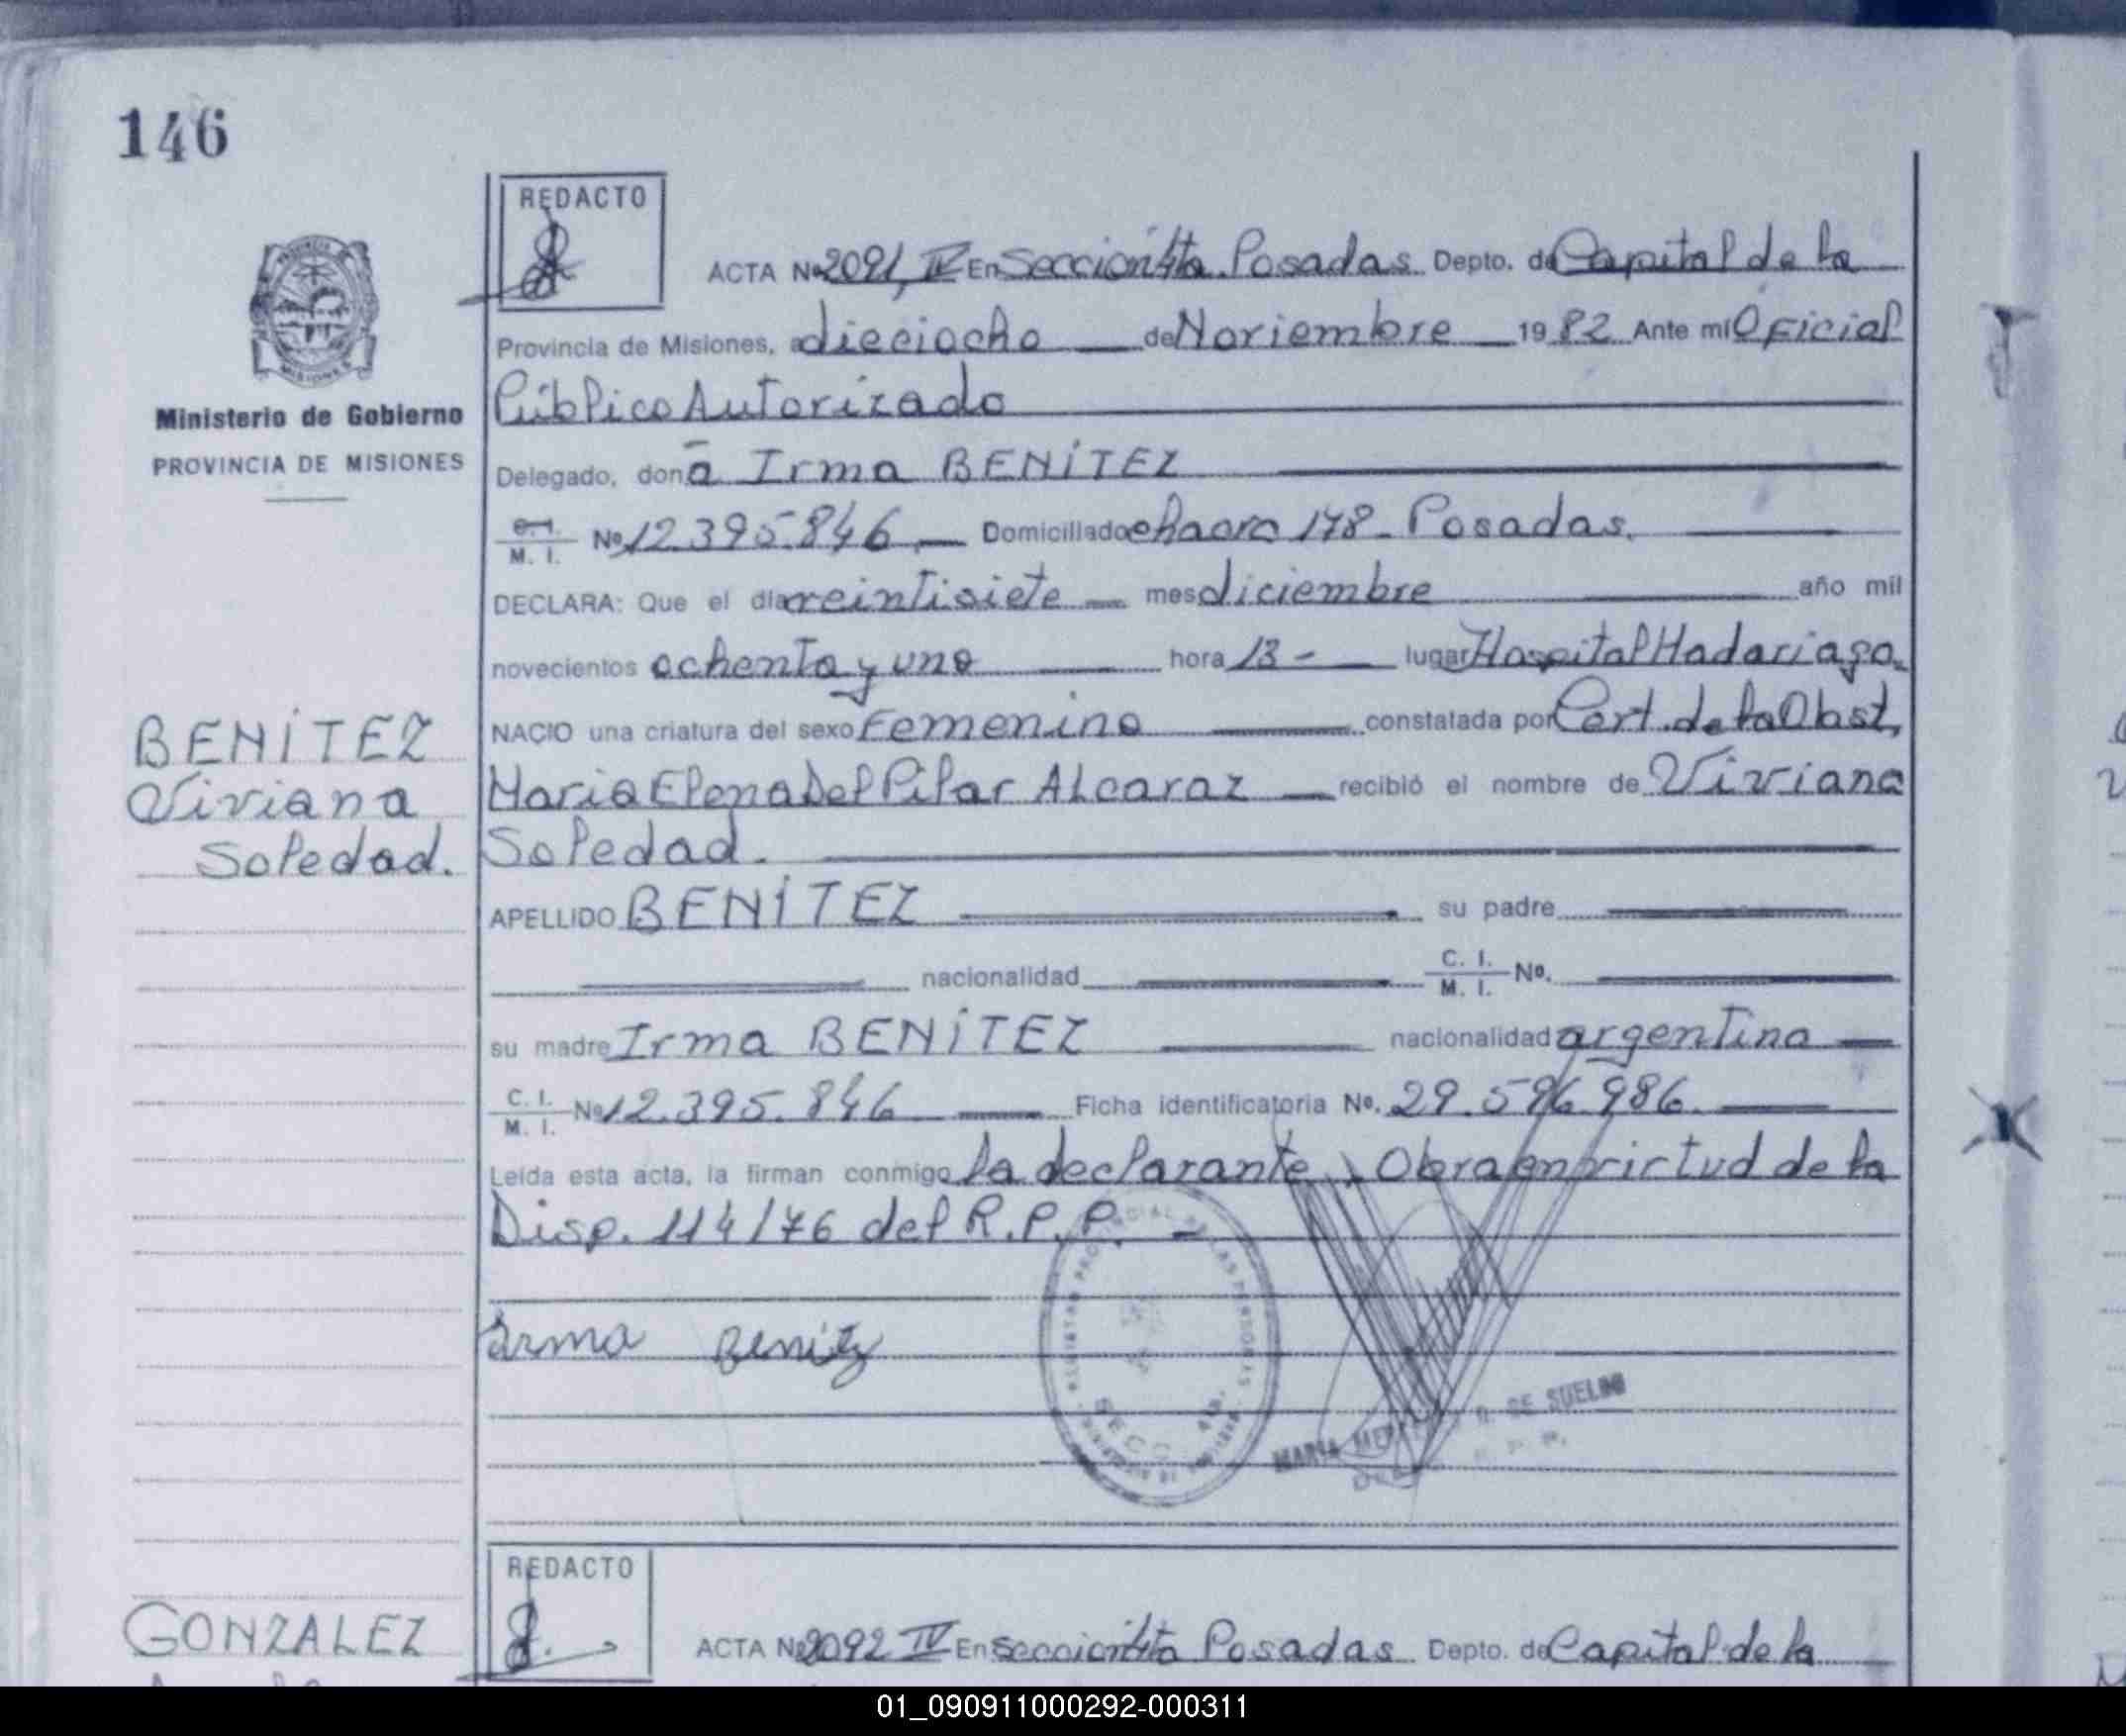 146
REDACTO
ACTA Nº 2091, IV En Sección 4ta. Posadas. Depto. de Capital de la
Provincia de Misiones, a dieciocho de Noviembre 1982 Ante mí Oficial
Público Autorizado
Ministerio de Gobierno
PROVINCIA DE MISIONES
Delegado, don ã Irma BENÍTEZ
C. I.
M. I. Nº 12.395.846 Domiciliado chacra 178 - Posadas.
DECLARA: Que el día veintisiete mes diciembre año mil
novecientos ochenta y uno hora 13 - lugar Hospital Madariaga.
BENÍTEZ
Viviana
Soledad.
NACIO una criatura del sexo Femenino constatada por Cert. de la Obst,
Maria Elena Del Pilar ALcaraz recibió el nombre de Viviana
Soledad.
APELLIDO BENÍTEZ su padre
nacionalidad C. I. M. I. Nº.
su madre Irma BENÍTEZ nacionalidad argentina
C. I.
M. I. Nº 12.395.846 Ficha identificatoria Nº. 29.596.986.
Leída esta acta, la firman conmigo la declarante, Obra en virtud de la
Disp. 114/76 del R.P.P. -
Irma Benitz
MARIA DE SUELINI
REDACTO
GONZALEZ
ACTA Nº 2092 IV En Sección 4ta Posadas. Depto. de Capital de la
01_090911000292-000311